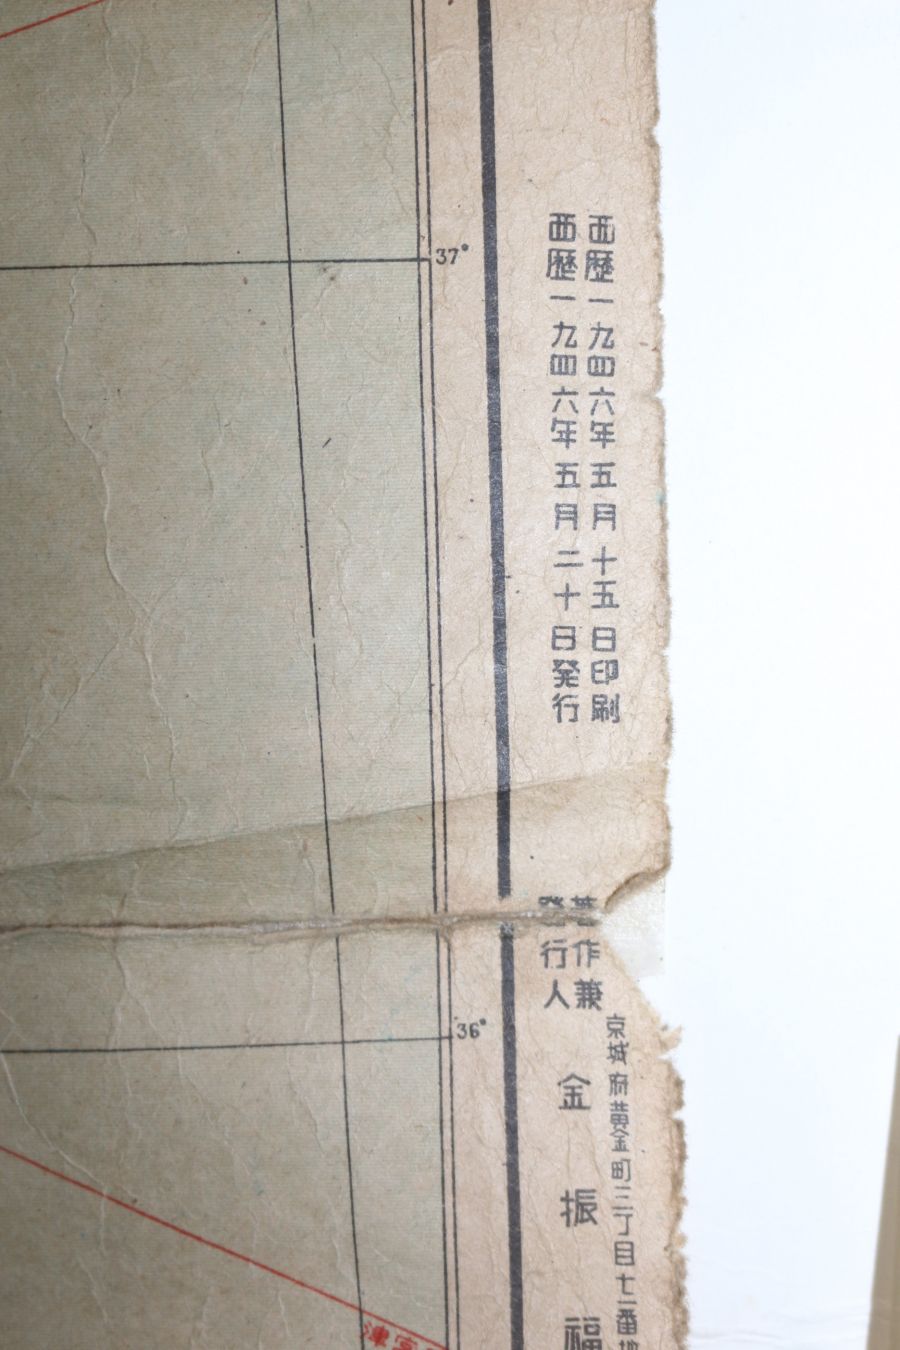 西歴一九四六年五月十五日印刷
西歴一九四六年五月二十日発行
京城府黄金町三丁目七二番地
著作兼
発行人
金振福
37°
36°
宮津